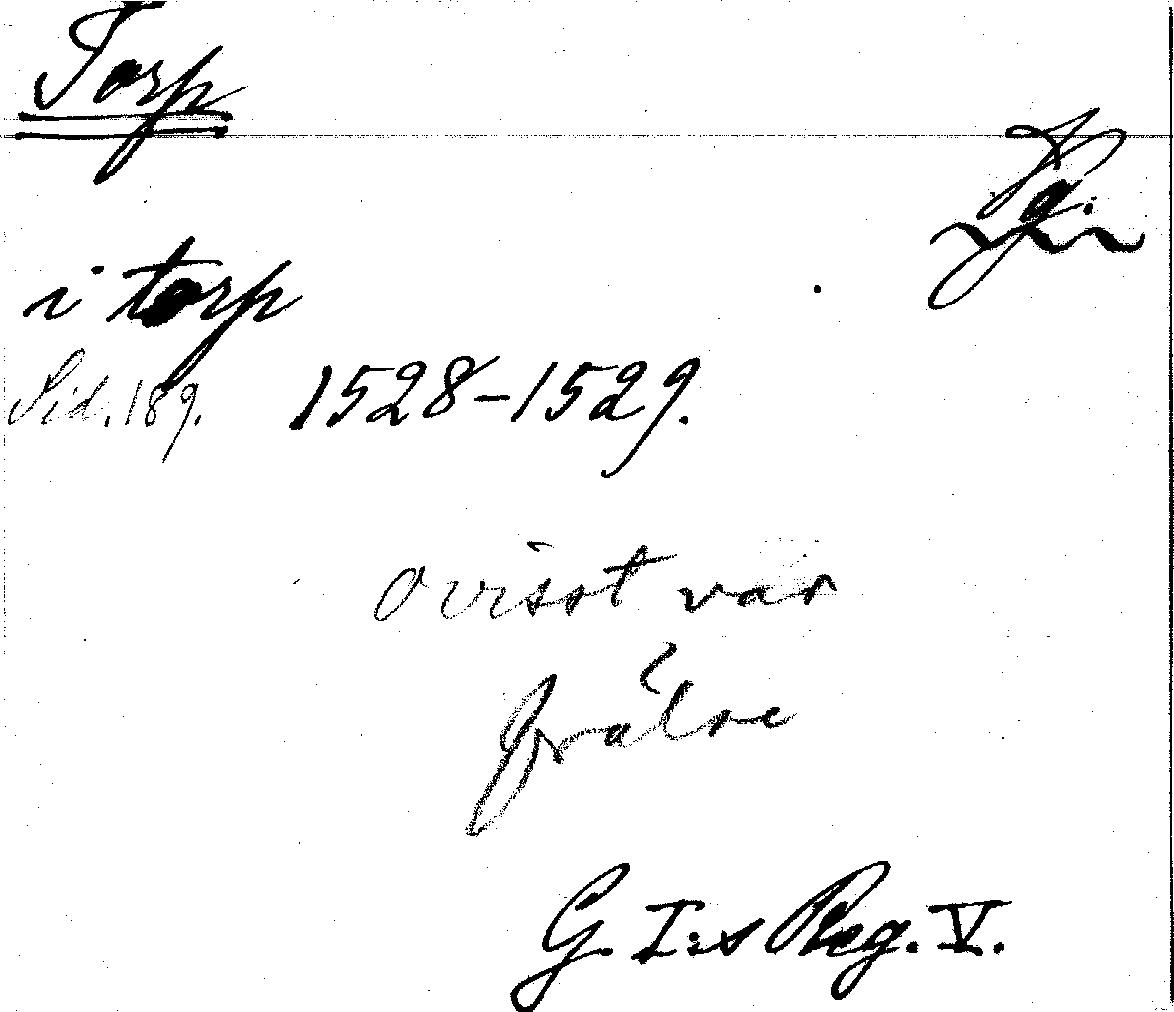 Torp
Ög.
i torp
Sid. 189. 1528-1529.
Ovisst var
frälse
G. I:s Reg. V.